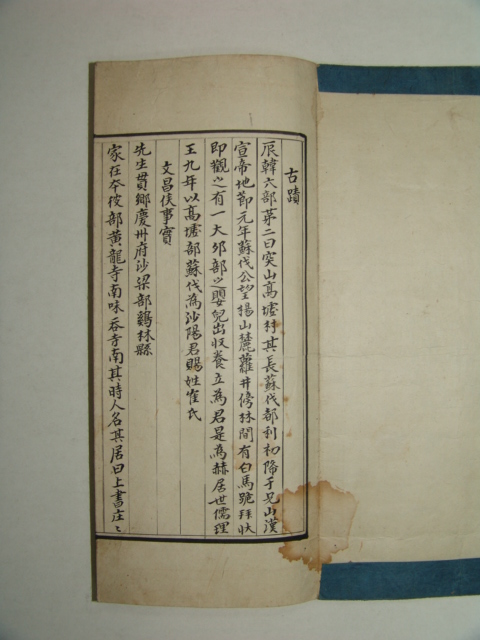 古蹟
辰韓六部苐二曰突山高墟村其長蘇伐都利初降于兄山漢
宣帝地節元年蘇伐公望揚山麓蘿井傍林間有白馬跪拜狀
即觀之有一大卵部之嬰兒出收養立為君是為赫居世儒理
王九年以高墟部蘇伐為沙陽君賜姓崔氏
文昌侯事實
先生貫鄉慶州府沙梁部鷄林縣
家在本彼部黃龍寺南味吞寺南其時人名其居曰上書庄〻